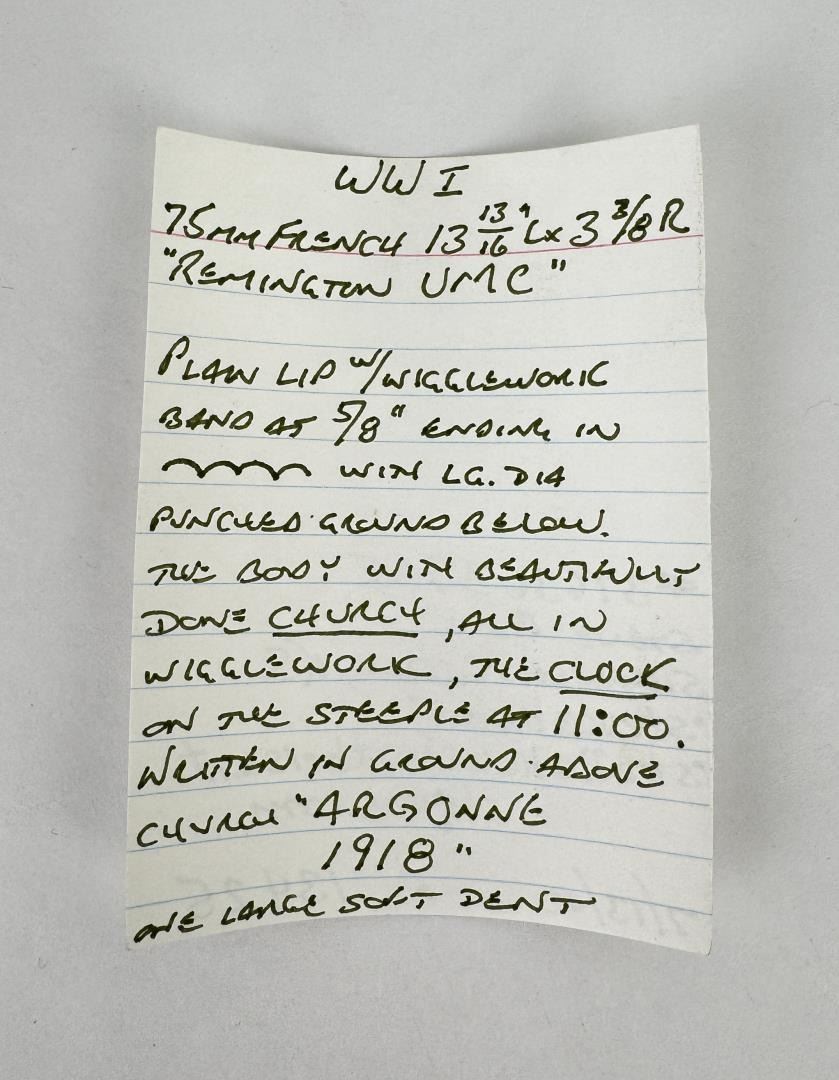 WW I
75MM FRENCH 13 13/16" L x 3 3/8 R
"REMINGTON UMC"
PLAIN LIP W/WIGGLEWORK
BAND AT 5/8" ENDING IN
WITH LG. DIA
PUNCHED GROUND BELOW.
THE BODY WITH BEAUTIFULLY
DONE CHURCH, ALL IN
WIGGLEWORK, THE CLOCK
ON THE STEEPLE AT 11:00.
WRITTEN IN GROUND ABOVE
CHURCH "ARGONNE
1918"
ONE LARGE SOFT DENT